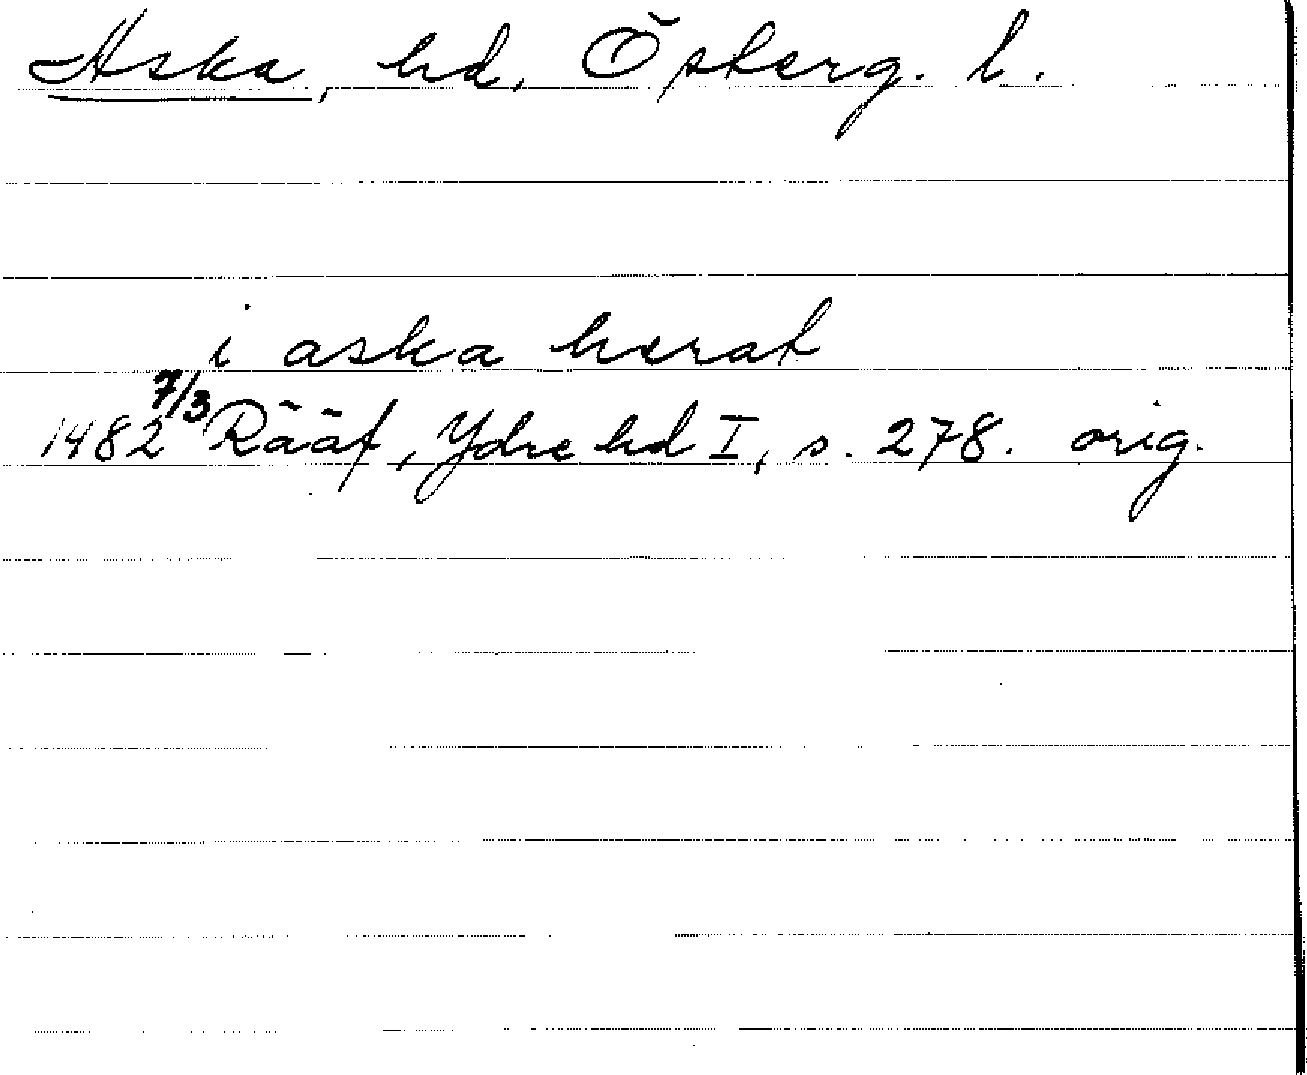 Aska, hd, Österg. l.
i aska herat
1482 7/3 Rääf, Ydre hd I, s. 278. orig.